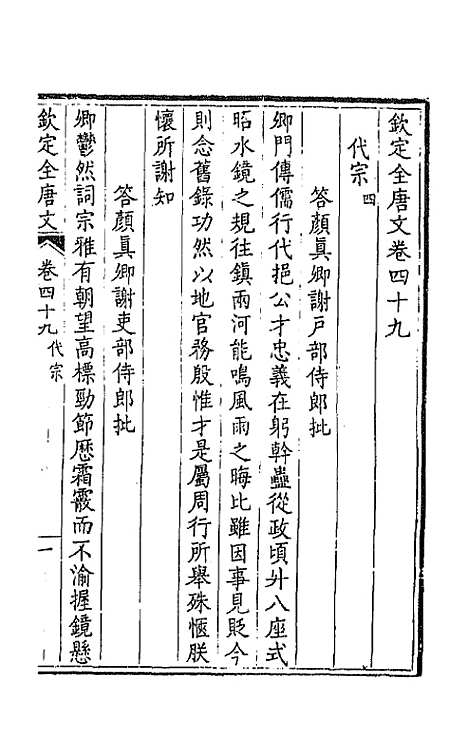 欽定全唐文卷四十九
代宗四
答顏真卿謝戸部侍郎批
卿門傳儒行代挹公才忠義在躬幹蠱從政頃升八座式
昭水鏡之規往鎮兩河能鳴風雨之晦比雖因事見貶今
則念舊錄功然以地官務殷惟才是屬周行所舉殊愜朕
懷所謝知
答顏真卿謝吏部侍郎批
卿鬱然詞宗雅有朝望高標勁節歷霜霰而不渝握鏡懸
欽定全唐文 卷四十九 代宗 一